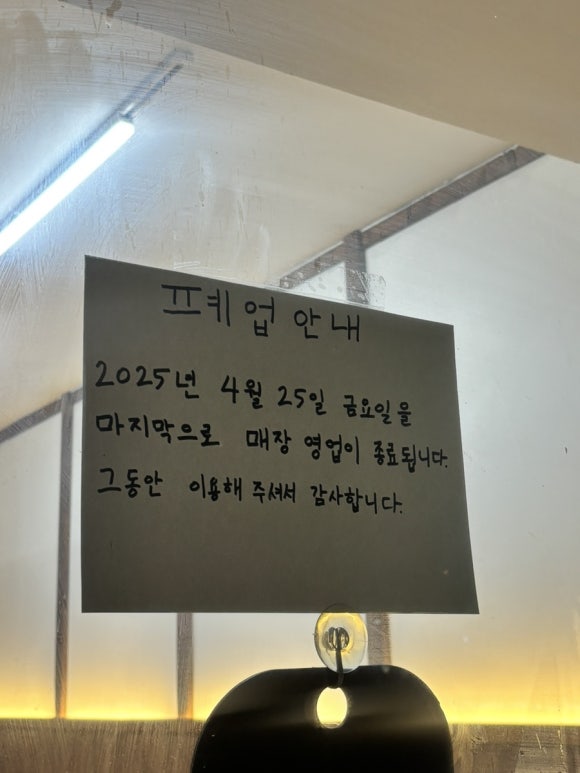 폐업 안내
2025년 4월 25일 금요일을
마지막으로 매장 영업이 종료됩니다.
그동안 이용해 주셔서 감사합니다.